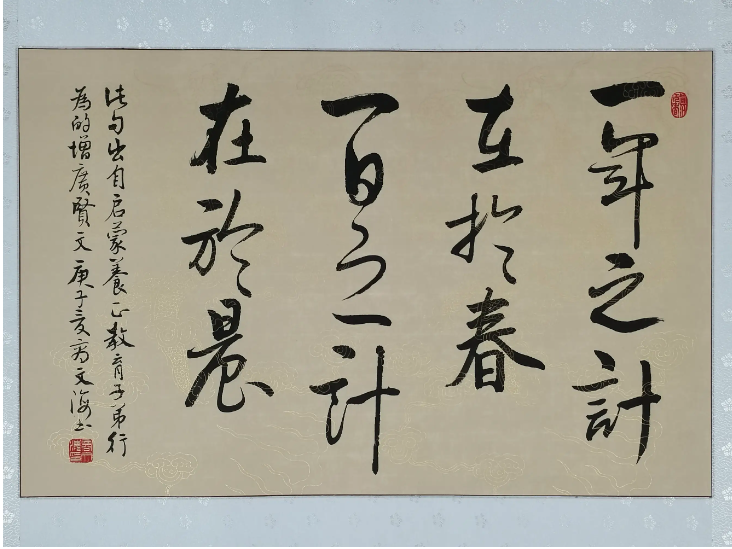 一年之計
在於春
一日之計
在於晨
此句出自启蒙養正教育子弟行
為的增廣賢文庚子夏齊文海书